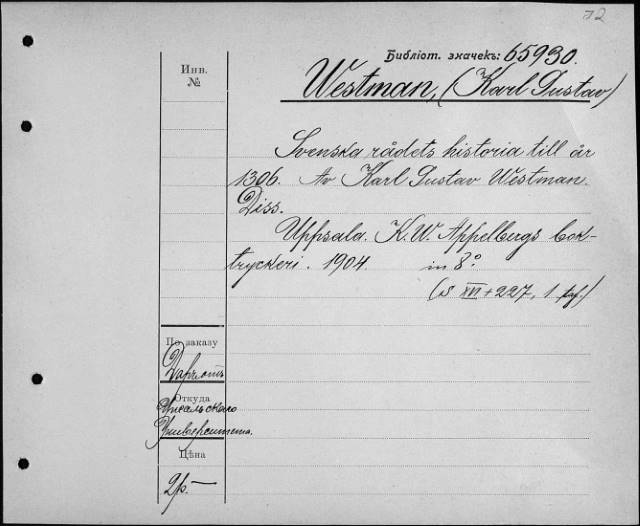 72
Библіот. значекъ: 65930.
Инв.
№
Westman, (Karl Gustav)
Svenska rådets historia till år
1306. Av Karl Gustav Westman.
Diss.
Uppsala. K. W. Appelbergs bok-
tryckeri. 1904. in 8°
XVI + 227, 1
По заказу
Откуда
Упсальскаго
Университета.
Цѣна
2р.—